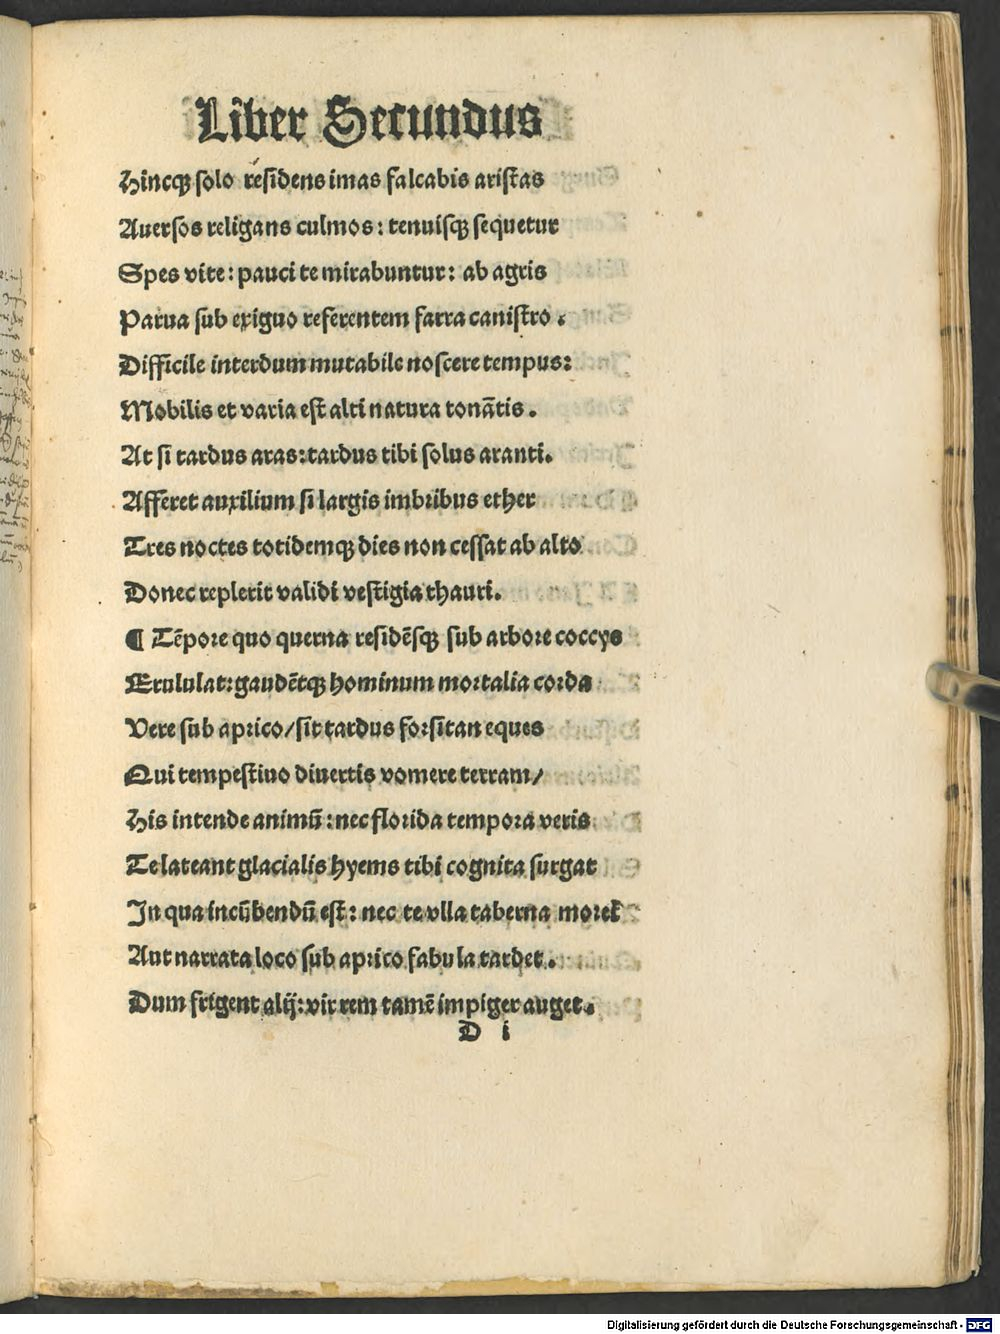 Liber Secundus
Hincqꝫ solo residens imas falcabis aristas
Auersos religans culmos: tenuisqꝫ sequetur
Spes vite: pauci te mirabuntur: ab agris
Parua sub exiguo referentem farra canistro.
Difficile interdum mutabile noscere tempus:
Mobilis et varia est alti natura tonãtis.
At si tardus aras: tardus tibi solus aranti.
Afferet auxilium si largis imbribus ether
Tres noctes totidemqꝫ dies non cessat ab alto
Donec replerit validi vestigia thauri.
¶ Tẽpore quo querna residẽsqꝫ sub arbore coccys
Erululat: gaudẽtqꝫ hominum mortalia corda
Vere sub aprico/ sit tardus forsitan eques
Qui tempestiuo diuertis vomere terram/
His intende animũ: nec florida tempora veris
Te lateant glacialis hyems tibi cognita surgat
In qua incũbendũ est: nec te vlla taberna
Aut narrata loco sub aprico fabula tardet.
Dum frigent alij: vir rem tamẽ impiger auget.
D i
Digitalisierung gefördert durch die Deutsche Forschungsgemeinschaft - DFG